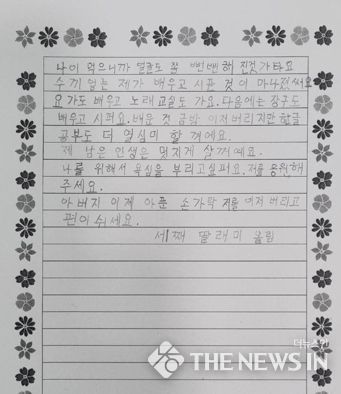 나이 먹으니까 얼굴도 좀 뻔뻔해 진것 가타요
수끼 없는 제가 배우고 시픈 것이 마나졌써요
요가도 배우고 노래교실도 가요. 다음에는 장구도
배우고 시퍼요. 배운 것 금방 이저버리지만 한글
공부도 더 열심미 할 꺼에요.
제 남은 인생은 멋지게 살꺼예요.
나를 위해서 욕심을 부리고 싶퍼요. 저를 응원해
주세요.
아버지 이제 아푼 손가락 저를 이저 버리고
편이 쉬세요.
세째 딸래미 올림
더뉴스인
THE NEWS IN